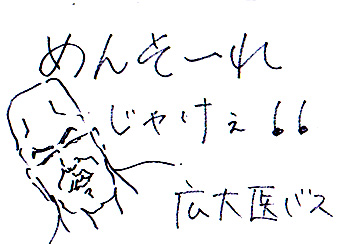 めんそーれ
じゃけぇ！！
広大医バス